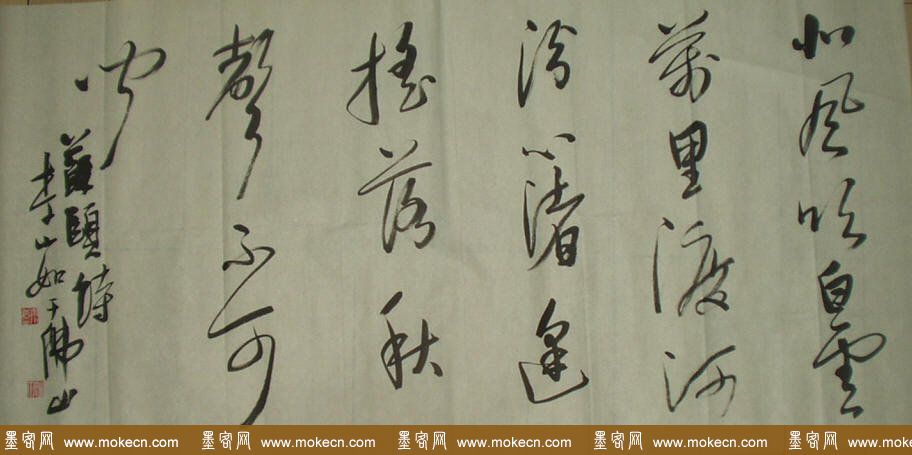 北風吹白雲
萬里渡河
汾心緒逢
搖落秋
聲不可
聞
蘇頲詩
李山如于佛山
墨客网 www.mokecn.com 墨客网 www.mokecn.com 墨客网 www.mokecn.com 墨客网 www.mokecn.com 墨客网 www.mokecn.com